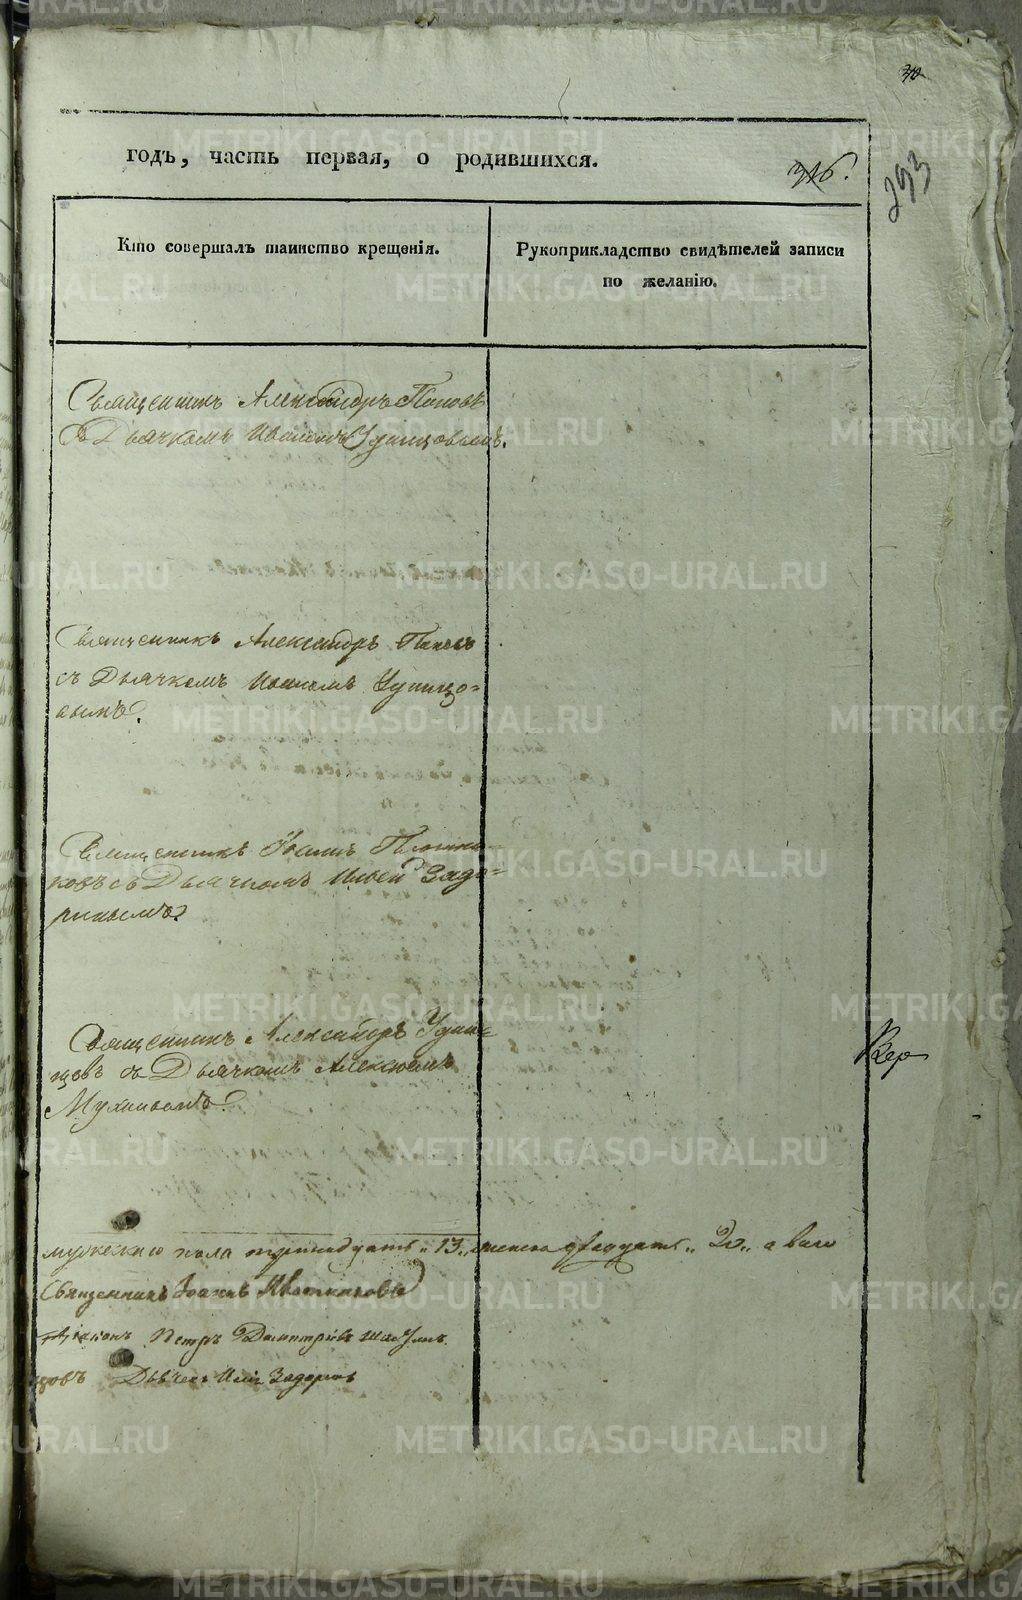 годъ, часть первая, о родившихся.
316.
293
Кто совершалъ таинство крещенія.
Рукоприкладство свидѣтелей записи
по желанію.
Священникъ Александръ Поповъ
съ Дьячкомъ Иваномъ Удинцовымъ.
Священникъ Александръ Поповъ
съ Дьячкомъ Иваномъ Удинцо=
вымъ.
Священникъ Іоаннъ
съ Дьячкомъ Ильей Задо=
ринымъ.
Священникъ Александръ Удин=
цовъ съ Дьячкомъ Алексѣемъ
Мухинымъ.
мужеска пола тринадцать „13„ женска двадцать „20„ а всего
Священникъ Іоаннъ
Діаконъ Петръ Димитріевъ
цовъ Дьячекъ Илія Задоринъ
METRIKI.GASO-URAL.RU